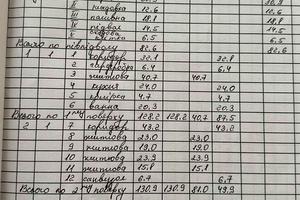 II кладова 12.6 12.6
III пашина 18.8 18.8
IV підвал 14.5 14.5
V 6.5 6.5
Всього по підвалу 82.6 82.6
1 1 1 коридор 32.1 32.1
2 гардероб 6.4 6.4
3 житлова 40.7 40.7
4 кухня 24.0 24.0
5 комірка 4.7 4.7
6 ванна 20.3 20.3
Всього по 1му поверху 128.2 128.2 40.7 87.5
2 1 7 коридор 43.2 43.2
8 житлова 23.0 23.0
9 житлова 19.0 19.0
10 житлова 23.9 23.9
11 житлова 15.1 15.1
12 санвузол 6.7 6.7
Всього по 2му поверху 130.9 130.9 81.0 49.9